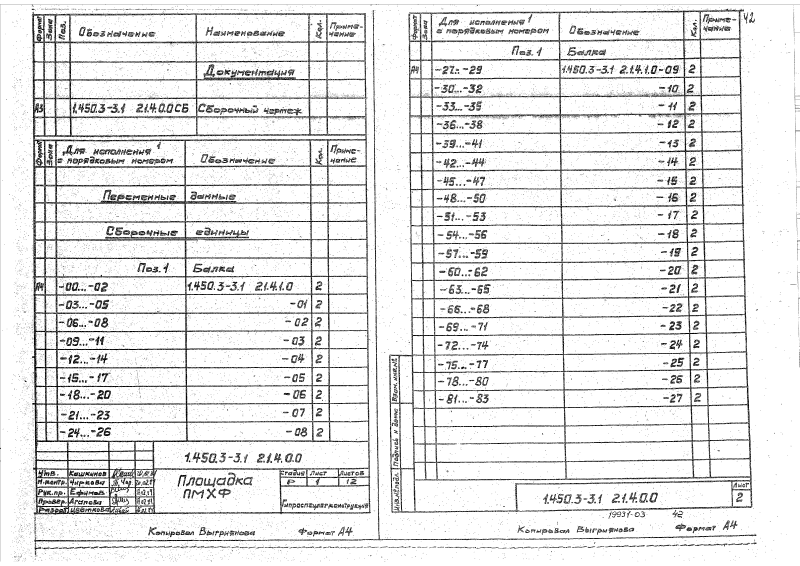 Формат Зона Поз. Обозначение Наименование Кол. Приме-
чание
Документация
А3 1.450.3-3.1 2.1.4.0.0 СБ Сборочный чертеж
Формат Зона Для исполнения 1
с порядковым номером Обозначение Кол. Приме-
чание
Переменные данные
Сборочные единицы
Поз. 1 Балка
А4 -00...-02 1.450.3-3.1 2.1.4.1.0 2
-03...-05 -01 2
-06...-08 -02 2
-09...-11 -03 2
-12...-14 -04 2
-15...-17 -05 2
-18...-20 -06 2
-21...-23 -07 2
-24...-26 -08 2
1.450.3-3.1 2.1.4.0.0
Утв. Кашкинов
Н.контр. Чиркова
Рук.пр. Ефимов
Провер. Агапова
Разраб. Цветкова
Площадка
ПМХФ
Стадия Лист Листов
Р 1 12
Гипроспецлегконструкция
Копировал Выгрианова Формат А4
42
Формат Зона Для исполнения 1
с порядковым номером Обозначение Кол. Приме-
чание
Поз. 1 Балка
А4 -27...-29 1.450.3-3.1 2.1.4.1.0-09 2
-30...-32 -10 2
-33...-35 -11 2
-36...-38 -12 2
-39...-41 -13 2
-42...-44 -14 2
-45...-47 -15 2
-48...-50 -16 2
-51...-53 -17 2
-54...-56 -18 2
-57...-59 -19 2
-60...-62 -20 2
-63...-65 -21 2
-66...-68 -22 2
-69...-71 -23 2
-72...-74 -24 2
-75...-77 -25 2
-78...-80 -26 2
-81...-83 -27 2
Инв.№подл. Подпись и дата Взам.инв.№
1.450.3-3.1 2.1.4.0.0
Лист
2
19931-03 42
Копировал Выгрианова Формат А4